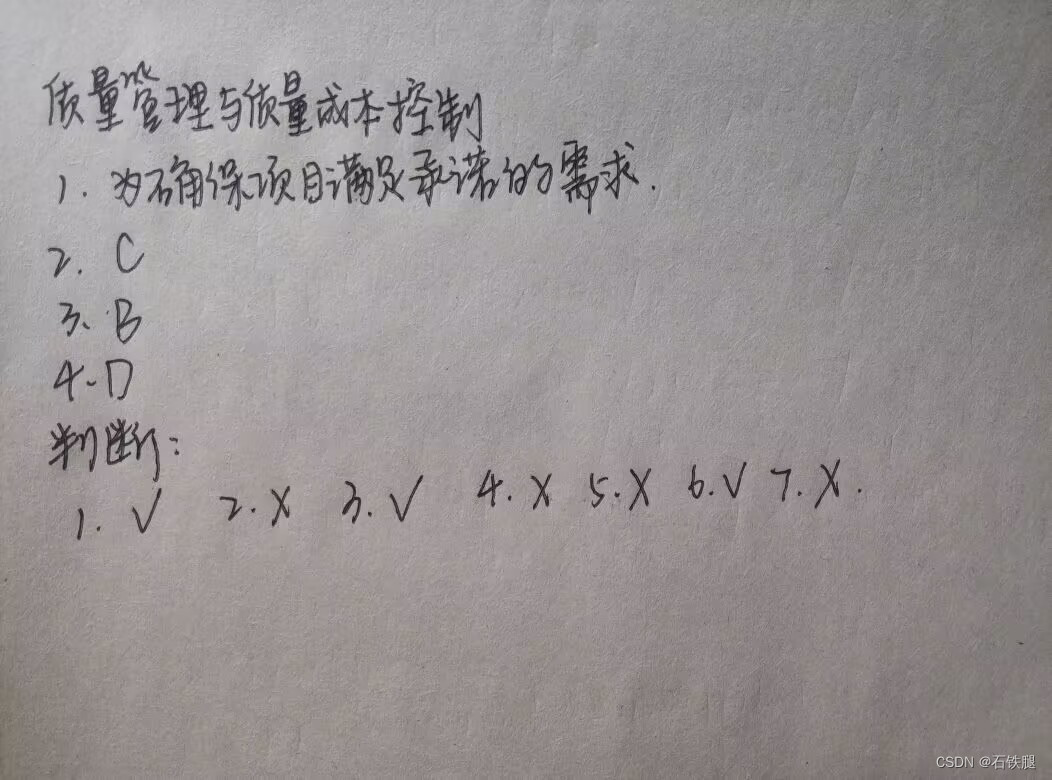 质量管理与质量成本控制
1. 为确保项目满足承诺的需求.
2. C
3. B
4. D
判断:
1. √ 2. X 3. √ 4. X 5. X 6. √ 7. X.
CSDN @石铁腿